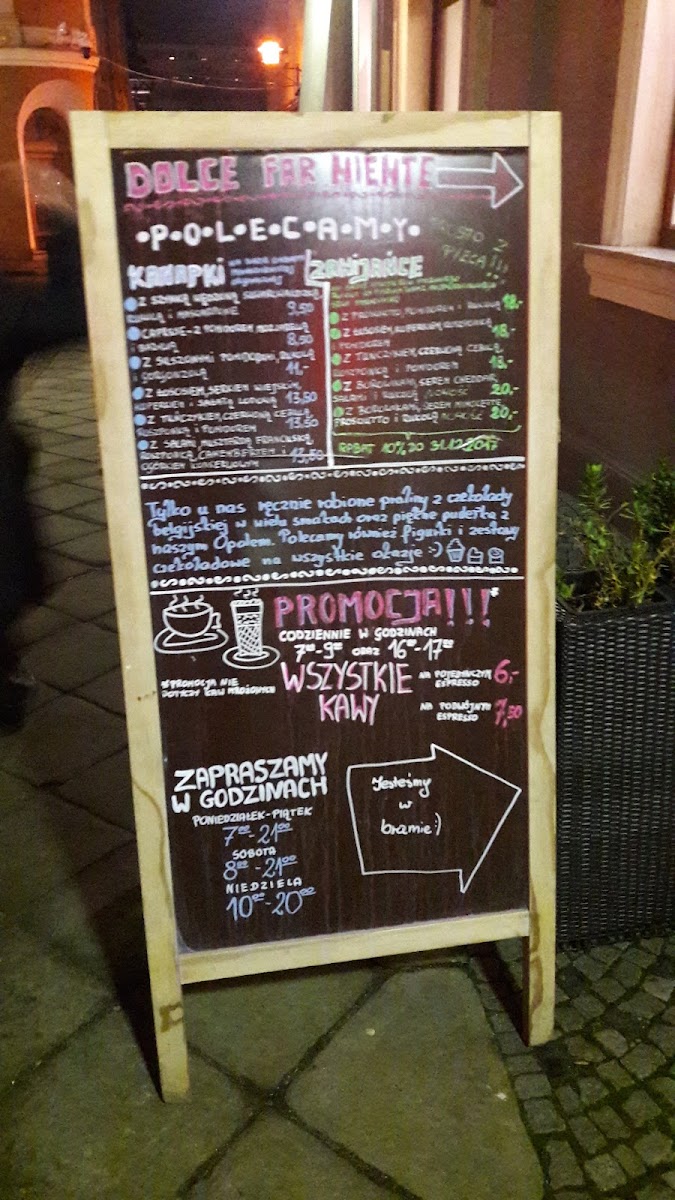 DOLCE FAR NIENTE
•P•O•L•E•C•A•M•Y•
PROSTO Z
PIECA!!!
KANAPKI
• Z SZYNKĄ WĘDZONĄ,
RUKOLĄ I 9,50
• CAPRESE-Z POMIDOREM, MOZZARELLĄ
I BAZYLIĄ 8,50
• Z SUSZONYMI POMIDORAMI, RUKOLĄ
I GORGONZOLĄ 11,-
• Z ŁOSOSIEM, SERKIEM WIEJSKIM,
KOPERKIEM I SAŁATĄ LODOWĄ 13,50
• Z TUŃCZYKIEM, CZERWONĄ CEBULĄ,
ROSZPONKĄ I POMIDOREM 13,50
• Z SALAMI, MUSZTARDĄ FRANCUSKĄ,
ROSZPONKĄ, CAMEMBERTEM I
OGÓRKIEM KONSERWOWYM 13,50
ZAWIJAŃCE
• Z PROSCIUTTO, POMIDOREM I RUKOLĄ 18,-
• Z ŁOSOSIEM, KOPERKIEM, ROSZPONKĄ
I POMIDOREM 18,-
• Z TUŃCZYKIEM, CZERWONĄ CEBULĄ,
ROSZPONKĄ I POMIDOREM 18,-
• Z BOROWIKAMI, SEREM CHEDDAR,
SALAMI I RUKOLĄ NOWOŚĆ 20,-
• Z BOROWIKAMI, SEREM
PROSCIUTTO I RUKOLĄ NOWOŚĆ 20,-
RABAT 10% DO 31.12.2017
Tylko u nas ręcznie robione praliny z czekolady
belgijskiej w wielu smakach oraz piękne pudełka z
naszym Opolem. Polecamy również figurki i zestawy
czekoladowe na wszystkie okazje :)
PROMOCJA!!!*
CODZIENNIE W GODZINACH
7⁰⁰-9⁰⁰ ORAZ 16⁰⁰-17⁰⁰
WSZYSTKIE
KAWY
NA POJEDYNCZYM
ESPRESSO 6,-
NA PODWÓJNYM
ESPRESSO 7,50
*PROMOCJA NIE
DOTYCZY KAW MROŻONYCH
ZAPRASZAMY
W GODZINACH
PONIEDZIAŁEK-PIĄTEK
7⁰⁰-21⁰⁰
SOBOTA
8⁰⁰-21⁰⁰
NIEDZIELA
10⁰⁰-20⁰⁰
Jesteśmy
w
bramie:)